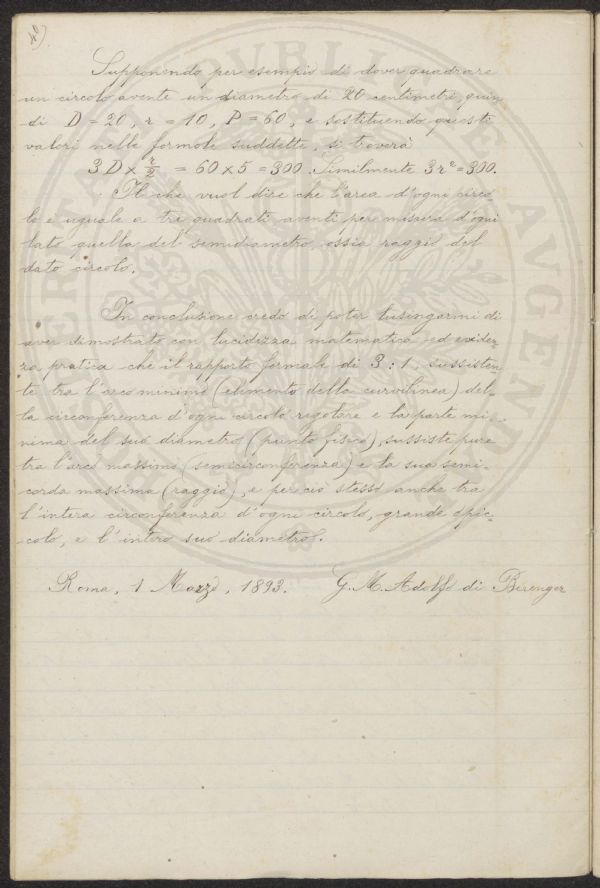 40)
Supponendo per esempio di dover quadrare
un circolo avente un diametro di 20 centimetri, quin
di D = 20, r = 10, P = 60, e sostituendo questi
valori nelle formole suddette, si troverà
3 D × r/2 = 60 × 5 = 300. Similmente 3 r² = 300.
Il che vuol dire che l'area d'ogni circo-
lo è uguale a tre quadrati aventi per misura d'ogni
lato quella del semidiametro ossia raggio del
dato circolo.
In conclusione credo di poter lusingarmi di
aver dimostrato con lucidezza matematica ed eviden-
za pratica che il rapporto formale di 3 : 1, sussisten-
te tra l'arco minimo (elemento della curvilinea) del-
la circonferenza d'ogni circolo regolare e la parte mi-
nima del suo diametro (punto fisico), sussiste pure
tra l'arco massimo (semicirconferenza) e la sua semi-
corda massima (raggio), e per ciò stesso anche tra
l'intera circonferenza d'ogni circolo, grande o pic-
colo, e l'intero suo diametro.
Roma, 1 Marzo, 1893. G. M. Adolfo di Berenger
PVBLI
AVGENDA